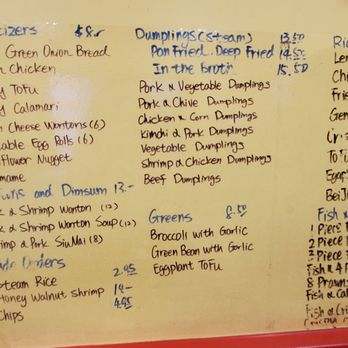 tizers $8.-
Green Onion Bread
Chicken
Tofu
Calamari
Cheese Wontons (6)
table Egg Rolls (6)
flower Nugget
mame
and Dimsum 13.-
& Shrimp Wonton (12)
& Shrimp Wonton Soup (12)
imp & Pork Siu Mai (8)
Orders
Steam Rice 2.95
Honey Walnut Shrimp 14.-
Chips 4.95
Dumplings (steam) 13.50
Pan Fried. Deep Fried 14.50
In the broth 15.50
Pork & Vegetable Dumplings
Pork & Chive Dumplings
Chicken & Corn Dumplings
Kimchi & Pork Dumplings
Vegetable Dumplings
Shrimp & Chicken Dumplings
Beef Dumplings
Greens 8.50
Broccoli with Garlic
Green Bean with Garlic
Eggplant Tofu
Ri
Le
Chi
Frie
Gen
To
BeiJi
Fish &
1 Piec
2 Piece
3 Piece
Fish &
8 Prawn
Fish & Ca
Fish &